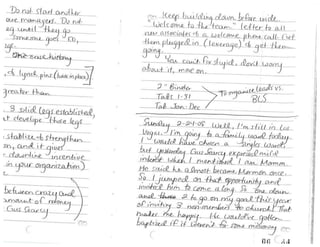 Do not start another
are managers. Do not
leg until they go
Someone goes CO,
of lynch pins (base in place)
greater than
3 solid legs established,
develope three legs
stablize & strengthen
on, and it gives
downline incentive
in your organization)
between crazy and
amount of money
Gus Searcy
Keep building down before wide.
"Welcome to the team" letter to all
new associates & a welcome phone call. Get
them plugged in (leverage) & get them
going.
You can't fix stupid, don't worry
about it, move on.
2" Binder
Tabs 1-31
Tab Jan-Dec
To organize leads vs.
BCS
Sunday 2-20-05 Well, I'm still in Las
Vegas. I'm going to a family ward today.
I would have chosen a Singles Ward,
but yesterday Gus Searcy expressed mild
interest when I mentioned I am Mormon.
He said he almost became Mormon once.
So I jumped on that opportunity and
invited him to come along. So one down
and three to go on my goal this year
of inviting 4 non-members to church. That
makes me happy. He would've gotten
baptized if it weren't for some missionary